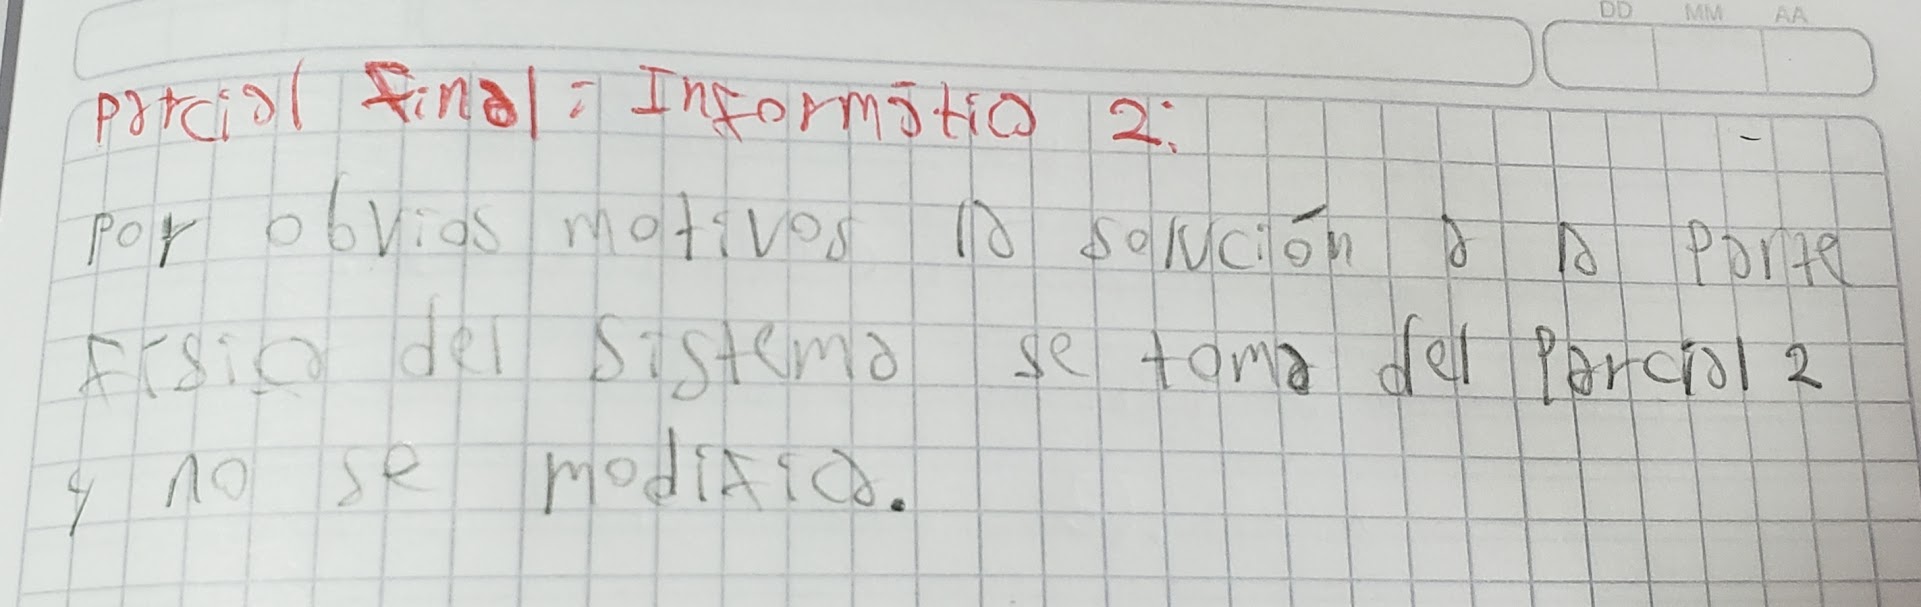 DD MM AA
Parcial final: Informática 2:
Por obvios motivos la solución a la parte
física del sistema se toma del Parcial 2
y no se modifica.